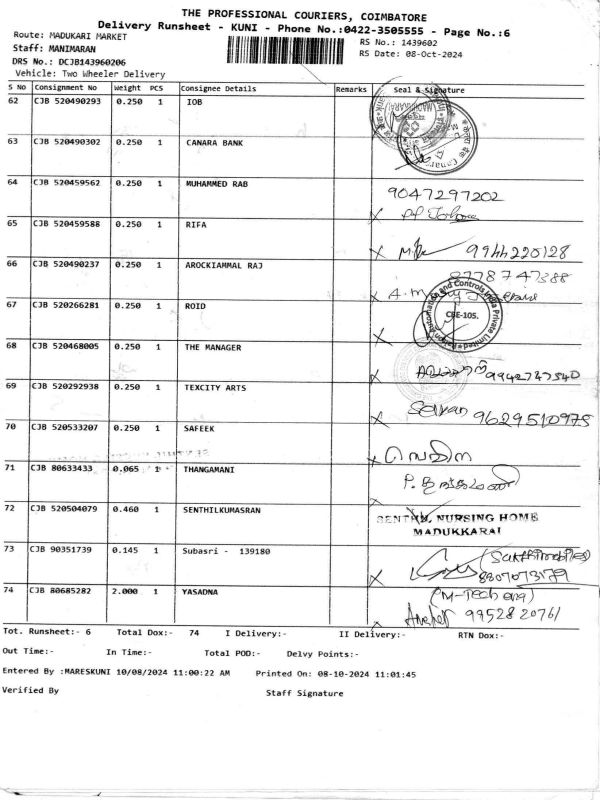 THE PROFESSIONAL COURIERS, COIMBATORE
Delivery Runsheet - KUNI - Phone No.:0422-3505555 - Page No.:6
Route: MADUKARI MARKET
RS No.: 1439602
Staff: MANIMARAN
RS Date: 08-Oct-2024
DRS No.: DCJB143960206
Vehicle: Two Wheeler Delivery
S No Consignment No Weight PCS Consignee Details Remarks Seal & Signature
62 CJB 520490293 0.250 1 IOB
63 CJB 520490302 0.250 1 CANARA BANK
64 CJB 520459562 0.250 1 MUHAMMED RAB 9047297202
65 CJB 520459588 0.250 1 RIFA 9944220128
66 CJB 520490237 0.250 1 AROCKIAMMAL RAJ 8778747388
67 CJB 520266281 0.250 1 ROID CBE-105.
68 CJB 520468005 0.250 1 THE MANAGER 9942747540
69 CJB 520292938 0.250 1 TEXCITY ARTS Selvan 9629510975
70 CJB 520533207 0.250 1 SAFEEK
71 CJB 80633433 0.065 1 THANGAMANI
72 CJB 520504079 0.460 1 SENTHILKUMASRAN SENTHIL NURSING HOME
MADUKKARAI
73 CJB 90351739 0.145 1 Subasri - 139180 8807073179
74 CJB 80685282 2.000 1 YASADNA (M-Tech eng)
9952820761
Tot. Runsheet:- 6 Total Dox:- 74 I Delivery:- II Delivery:- RTN Dox:-
Out Time:- In Time:- Total POD:- Delvy Points:-
Entered By :MARESKUNI 10/08/2024 11:00:22 AM Printed On: 08-10-2024 11:01:45
Verified By Staff Signature